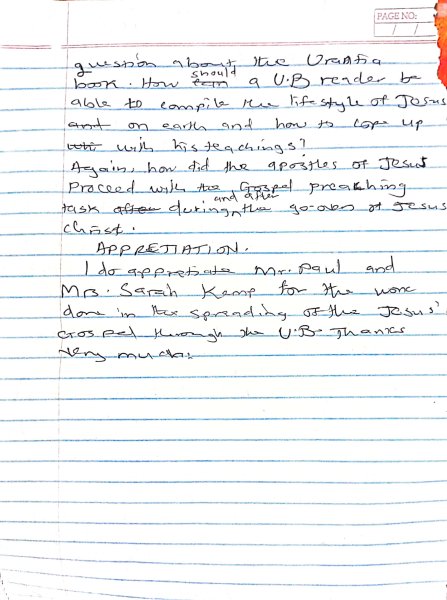 PAGE NO:
/ /
question about the Urantia
book. How should a U.B reader be
able to compile the lifestyle of Jesus
on earth and how to cope up
with his teachings?
Again, how did the apostles of Jesus
Proceed with the Gospel preaching
task during and after the go-over of Jesus
Christ.
APPRETIATION.
I do appretiate Mr. Paul and
Mrs. Sarah Kemp for the work
done in the spreading of the Jesus'
Gospel through the U.B. Thanks
very much.